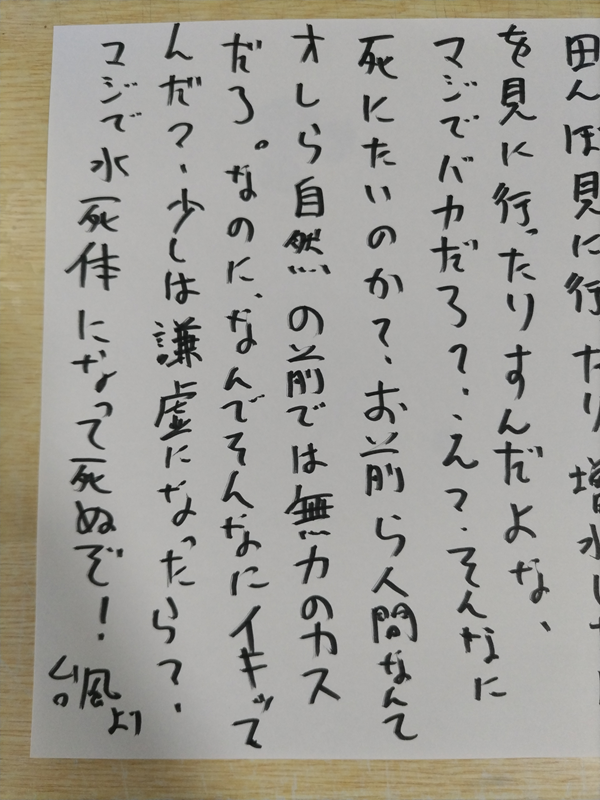 田んぼ見に行ったり増水した
を見に行ったりすんだよな、
マジでバカだろ？え？そんなに
死にたいのか？お前ら人間なんて
オレら自然の前では無力のカス
だろ。なのに、なんでそんなにイキッて
んだ？少しは謙虚になったら？
マジで水死体になって死ぬぞ！
台風より